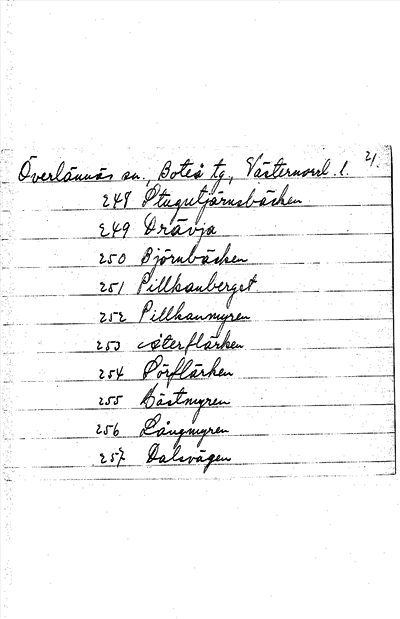 Överlännäs sn., Boteå tg., Västernorrl. l. 21.
248 Stugutjärnsbäcken
249 Drävja
250 Björnbäcken
251 Pillkanberget
252 Pillkanmyren
253
254 Pörflärken
255 Bästmyren
256 Långmyren
257 Dalsvägen